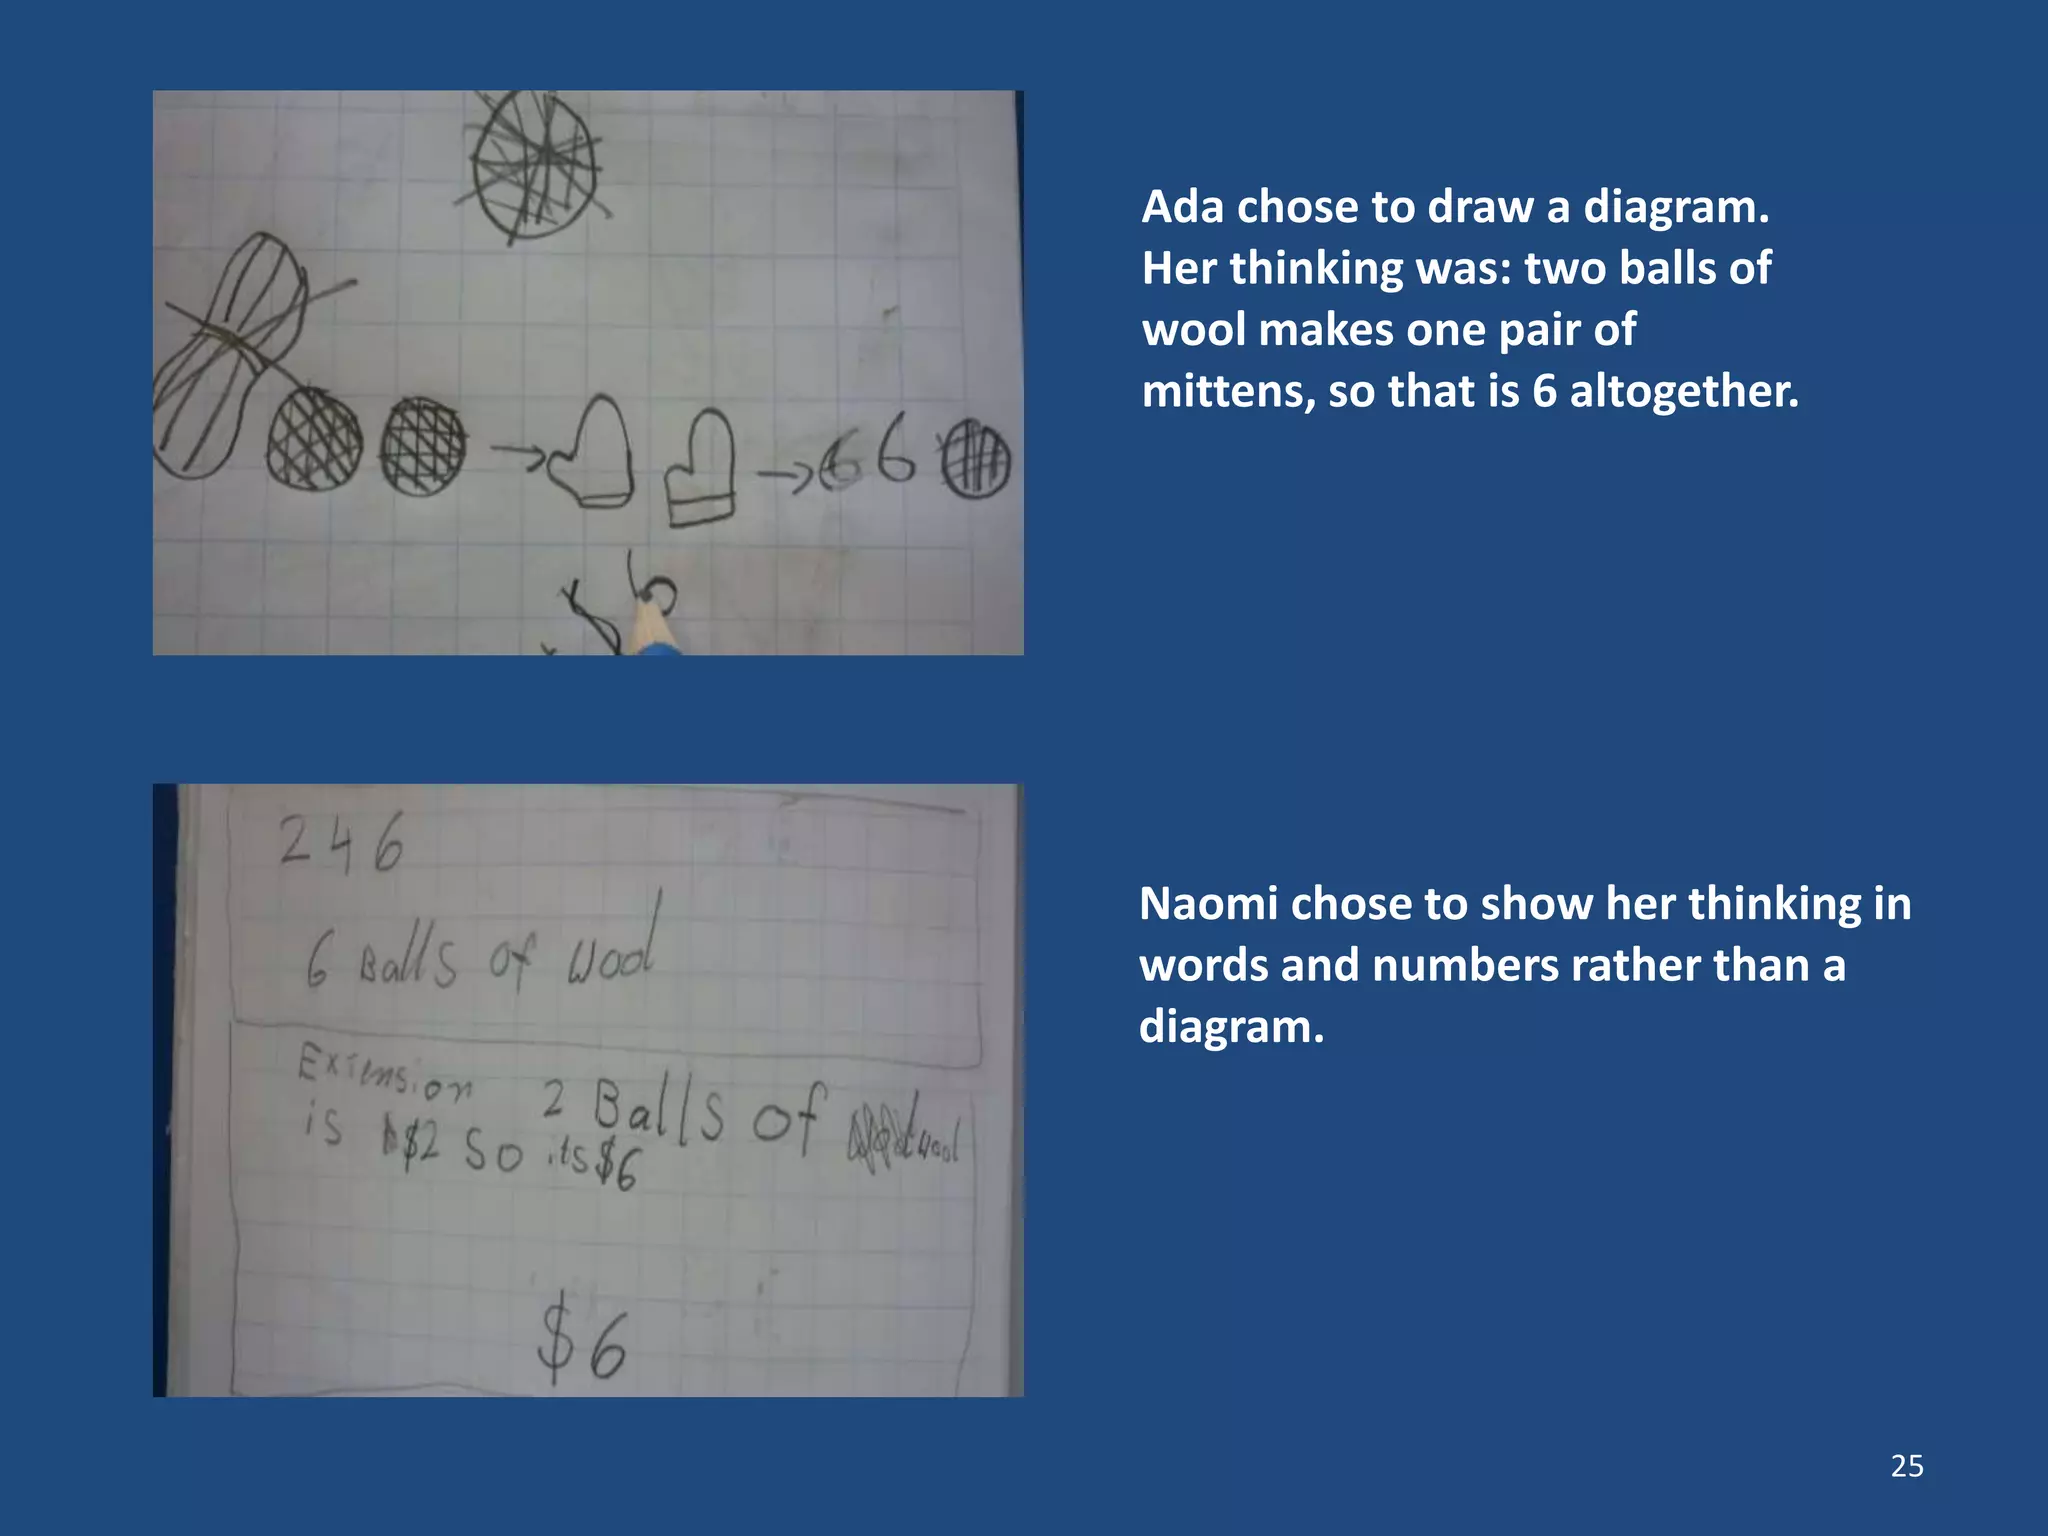 Ada chose to draw a diagram.
Her thinking was: two balls of
wool makes one pair of
mittens, so that is 6 altogether.
6 6
2 4 6
6 Balls of wool
Extension 2 Balls of wool
is $2 so its $6
$6
Naomi chose to show her thinking in
words and numbers rather than a
diagram.
25